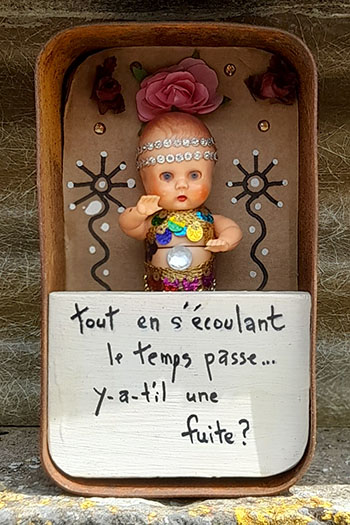 tout en s'écoulant
le temps passe...
y-a-t'il une
fuite?